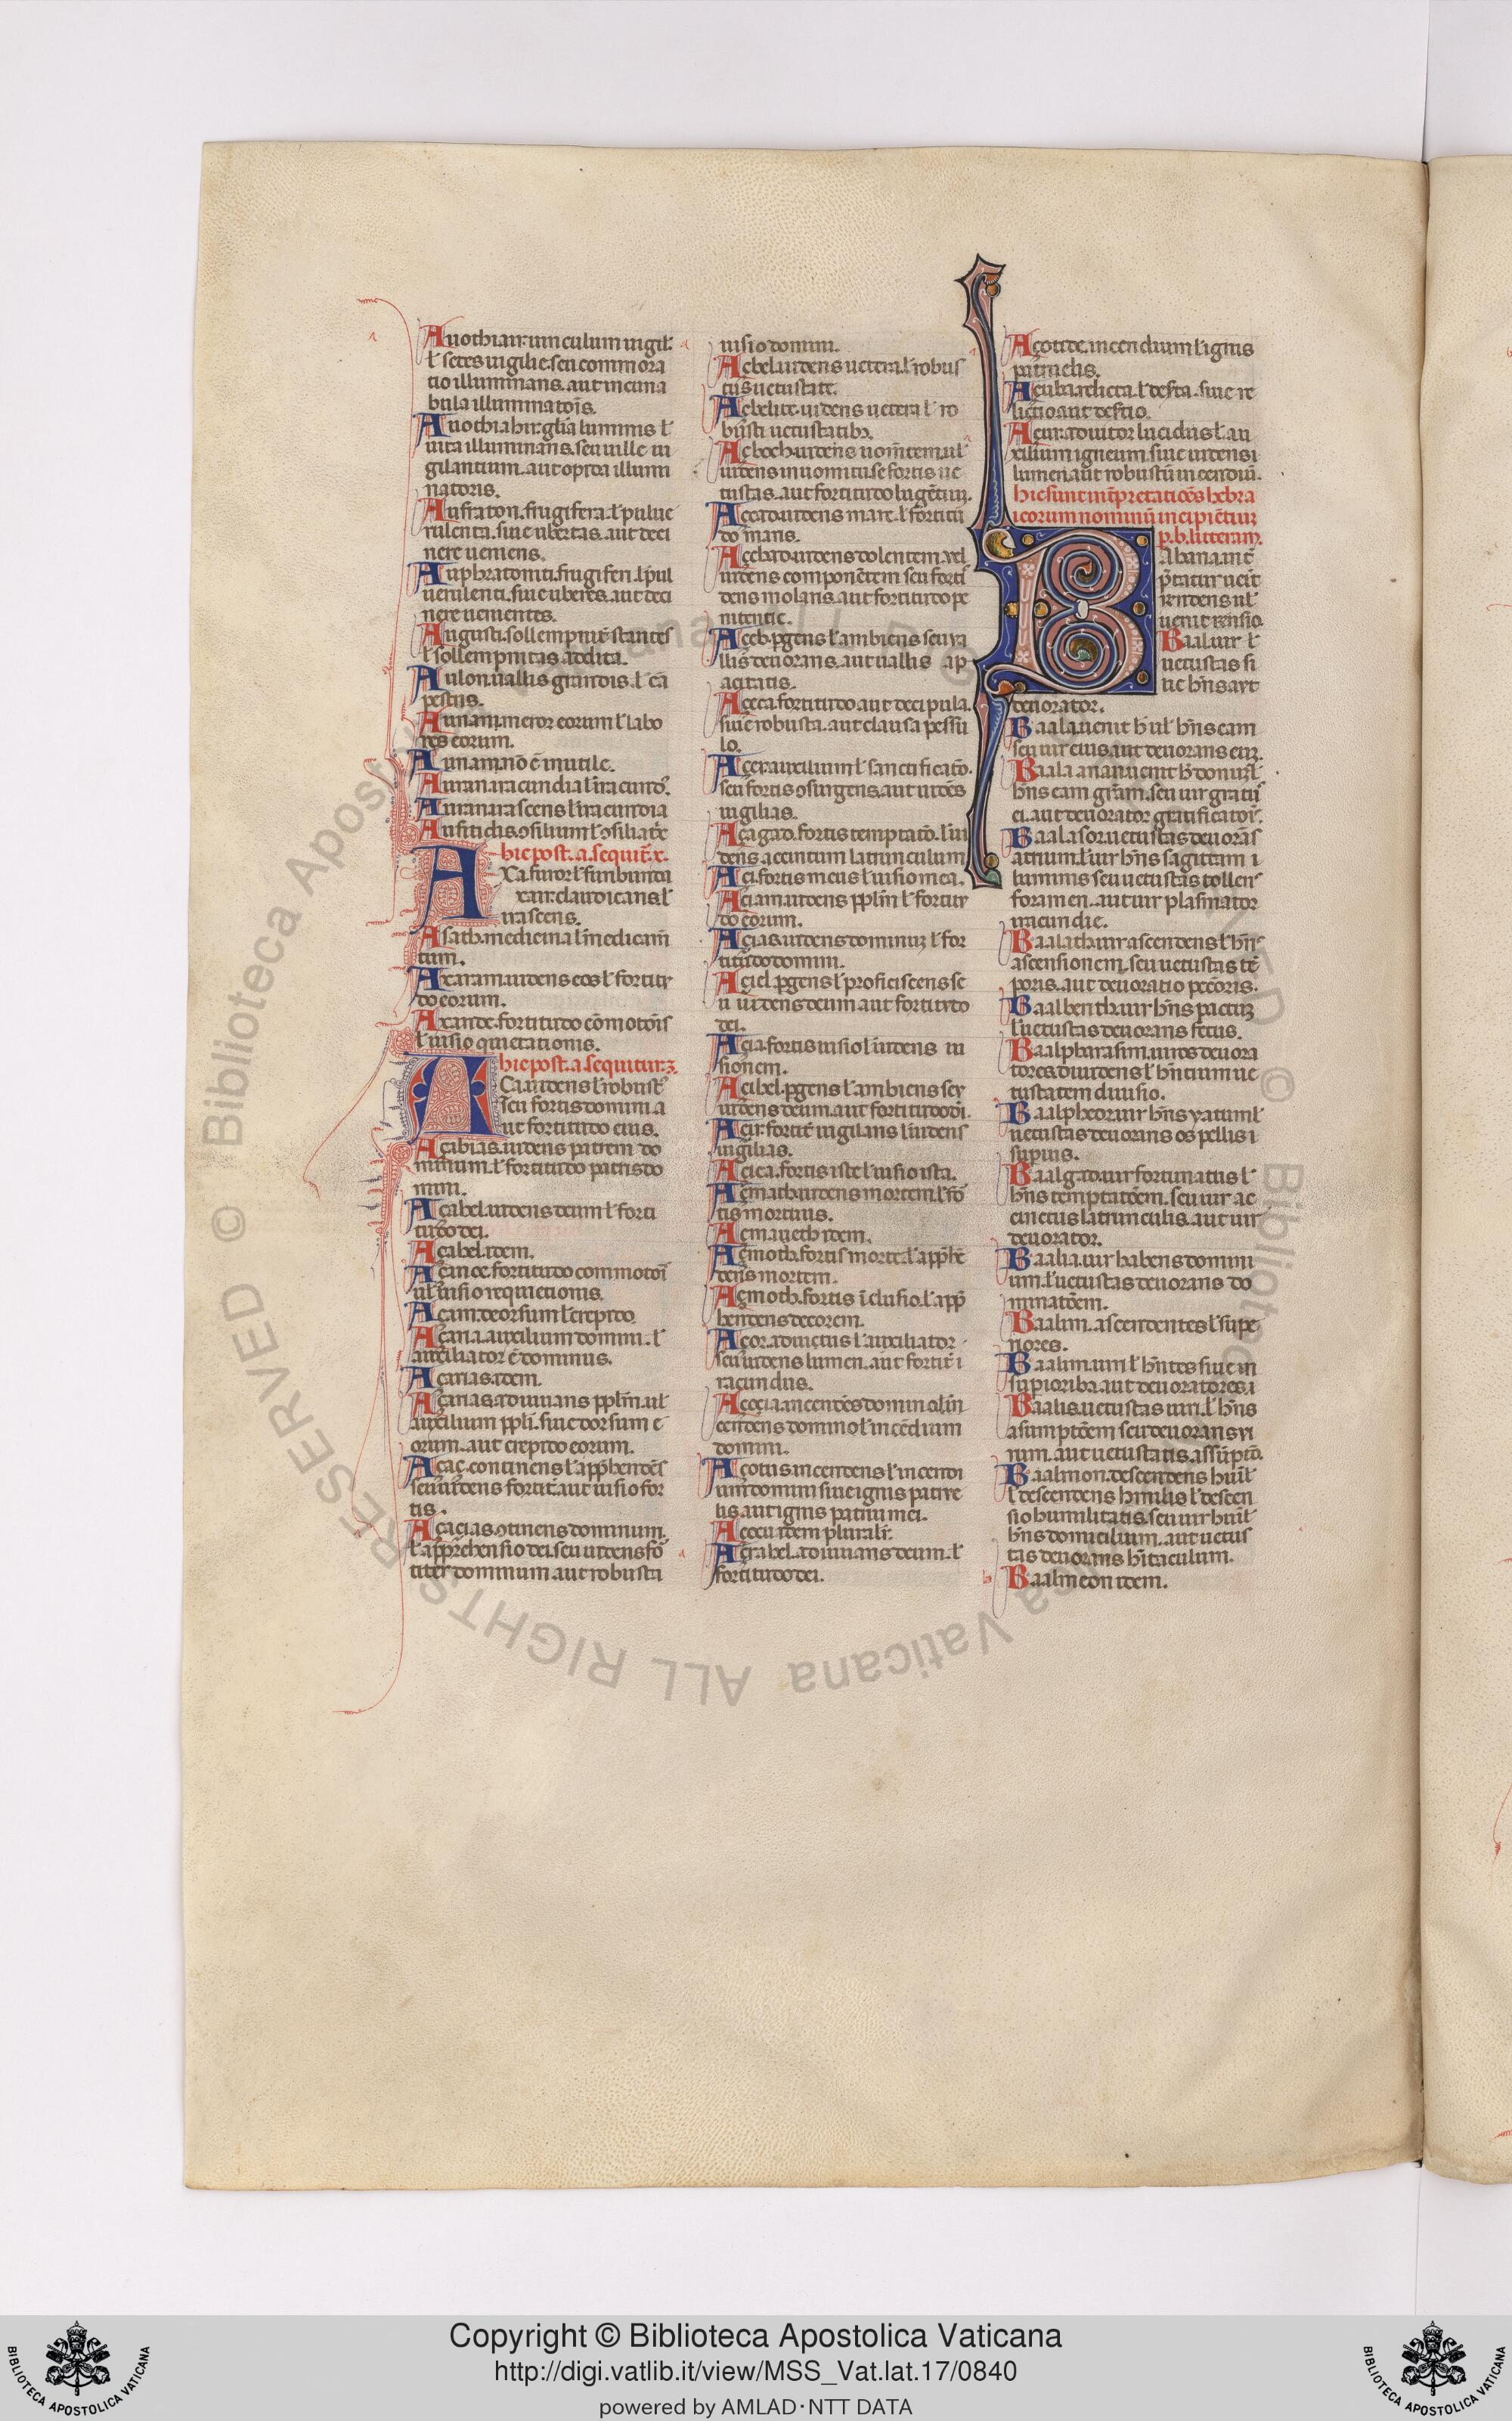 Auothiair. uinculum uigil'
l' seces uigilie. seu commora
tio illuminans. aut incuna
bula illuminatois.
Auothiahir. glia luminis l'
uita illuminans. seu uille ui
gilantium. aut opida illumi
natoris.
Aufraton. frugifera. l' pulue
rulenta. siue ubertas. aut deci
nere ueniens.
Auphratomti. frugiferi. l' pul
uerulenti. siue uberes. aut deci
nere uenientes.
Augusti. sollempnit' stantes
l' sollempnitas addita.
Aulon. uallis grandis. l' ca
pestris.
Aunam. meror eorum l' labo
res eorum.
Aunam. no e inutile.
Auran. iracundia l' iracund'.
Auran. irascens l' iracundia
Ausitidis. ↄsilium l' ↄsiliatrix
hic post. a. sequit'. x.
AXa. furor l' furibunda
xan. claudicans l'
irascens.
Asath. medicina l' medicam
tum.
Axaram. uidens eos l' fortitu
do eorum.
Axande. fortitudo comotois
l' uisio quietationis.
hic post. a. sequitur. z.
AÇa. uidens l' robust'
seu fortis domina
ut fortitudo eius.
Açabias. uidens patrem do
minum. l' fortitudo patris do
mini.
Açabel. uidens deum l' forti
tudo dei.
Açabel. idem.
Açance. fortitudo commotois
ul' uisio requietionis.
Açani. deorsum l' crepido.
Açaria. auxilium domini. l'
auxiliator e dominus.
Açarias. idem.
Açarias. adiuuans pplm. ul'
auxilium ppli. siue dorsum e
orum. aut crepido eorum.
Açaç. continens l' appbendes
seu uidens fortit'. aut uisio for
tis.
Açaçias. ↄtinens dominum.
l' apprehensio dei. seu uidens for
titer dominum aut robusta
uisio domini.
Açebel. uidens uetera. l' robus
tus uetustate.
Açebelite. uidens uetera l' ro
busti uetustatibus.
Açeboch. uidens uomitem. ul'
uidens in uomitu. se fortis ue
tustas. aut fortitudo lugetium.
Açecad. uidens mare. l' fortitu
do maris.
Açecad. uidens dolentem. uel
uidens componetem seu forti
dens molaris. aut fortitudo pe
nitentie.
Açeeb. pgens l' ambiens seu ua
llis deuorans. aut uallis ap
acitatis.
Açeca. fortitudo aut decipula.
siue robusta. aut clausa pessu
lo.
Açer. auxilium l' sanctificatio.
seu fortis ↄsurgens. aut uides
uigilias.
Açagad. fortis temptatio. l' ui
dens accinctum latrunculum
Açi. fortis meus l' uisio mea.
Açiam. uidens pplm l' fortitu
do eorum.
Açias. uidens dominum l' for
titudo domini.
Açiel. pgens l' proficiscens se
u uidens deum aut fortitudo
dei.
Açia. fortis uisio l' uidens ui
sionem.
Açibel. pgens l' ambiens seu
uidens deum. aut fortitudo di.
Açir. fortit' uigilans l' uidens
uigilias.
Açiça. fortis iste l' uisio ista.
Açmath. uidens mortem. l' for
tis mortuus.
Açmaueth idem.
Açmoth. fortis morte. l' appbe
dens mortem.
Açmoth. fortis i clusio. l' app
hendens decorem.
Açor. adiutus l' auxiliator
seu uidens lumen. aut fortit' i
racundus.
Açoçia. incendes domino. l' in
cendens domino l' incedium
domini.
Açotus incendens l' incendi
um domini siue ignis patrue
lis. aut ignis patrui mei.
Açoçii idem plural'r.
Açrabel. adiuuans deum. l'
fortitudo dei.
Açotide. incendium l' ignis
patruelis.
Açuba. relicta. l' deserta. siue re
lictio aut desertio.
Açur. adiutor lucidus l' au
xilium igneum. siue uidens i
lumen. aut robustu incendiu.
hic sunt intpretatioes hebra
icorum nominu incipietium
p. b. litteram.
Abana. int
pretatur uenit
iendens ul'
uenit rensio.
Baal. uir l'
uetustas si
ue hns aut
deuorator.
Baala. uenit h ul' hns eam
seu uir eius. aut deuorans eum.
Baala anan uenit h' donum l'
hns eam gram. seu uir gratu
ei. aut deuorator gratificatois.
Baalasor. uetustas deuoras
atrium. l' uir hns sagittam i
luminis seu uetustas tollens
foramen. aut uir plasmator
iracundie.
Baalath. uir ascendens l' hns
ascensionem. seu uetustas te
poris. aut deuoratio pecoris.
Baalberith. uir hns pactum
l' uetustas deuorans fetus.
Baalpharasim. uiros deuora
tores. diuidens l' hntium ue
tustatem diuisio.
Baalpheor. uir hns yatum l'
uetustas deuorans os pellis i
supius.
Baalgad. uir fortunatus l'
hns temptatoem. seu uir ac
cinctus latrunculis. aut uir
deuorator.
Baalia. uir habens domini
um. l' uetustas deuorans do
minatoem.
Baalim. ascendentes l' supe
riores.
Baalim. uiri l' hntes siue in
superioribus. aut deuoratores. i
Baalis. uetustas uiri. l' hns
asumptoem seu deuorans ui
rum. aut uetustatis. assuptio.
Baalmon. descendens hul'
l' descendens humilis l' descen
sio humilitatis. seu uir huil'
hns domicilium. aut uetus
tas deuorans hitaculum.
Baalmeon idem.
© Biblioteca Apostolica Vaticana ALL RIGHTS RESERVED
Copyright © Biblioteca Apostolica Vaticana
http://digi.vatlib.it/view/MSS_Vat.lat.17/0840
powered by AMLAD · NTT DATA
BIBLIOTECA APOSTOLICA VATICANA
BIBLIOTECA APOSTOLICA VATICANA